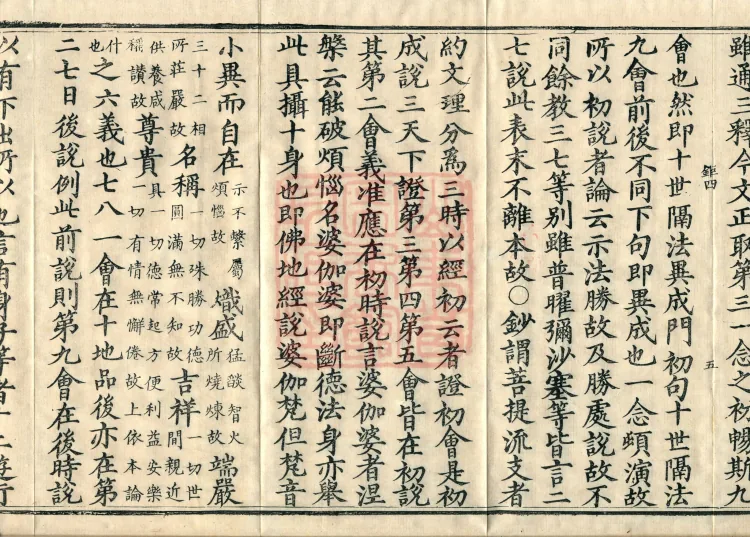 雖通三釋今文正取第三一念之初暢斯九
會也然即十世隔法異成門初句十世隔法
鉅四
五
九會前後不同下句即異成也一念頓演故
所以初說者論云示法勝故及勝處說故不
同餘教三七等別雖普曜彌沙塞等皆言二
七說此表末不離本故〇鈔謂菩提流支者
約文理分為三時以經初云者證初會是初
成說三天下證第三第四第五會皆在初說
其第二會義准應在初時說言婆伽婆者涅
槃云能破煩惱名婆伽婆即斷德法身亦舉
此具攝十身也即佛地經說婆伽梵但梵音
小異而自在示不繫屬煩惱故熾盛猛談智火所燒煉故端嚴
三十二相所莊嚴故名稱一切殊勝功德圓滿無不知故吉祥一切世間親近
供養咸稱讚故尊貴具一切德常起方便利益安樂一切有情無懈倦故上依本論
什也之六義也七八一會在十地品後亦在第
二七日後說例此前說則第九會在後時說
以有下出所以也言有身子等者十二遊行